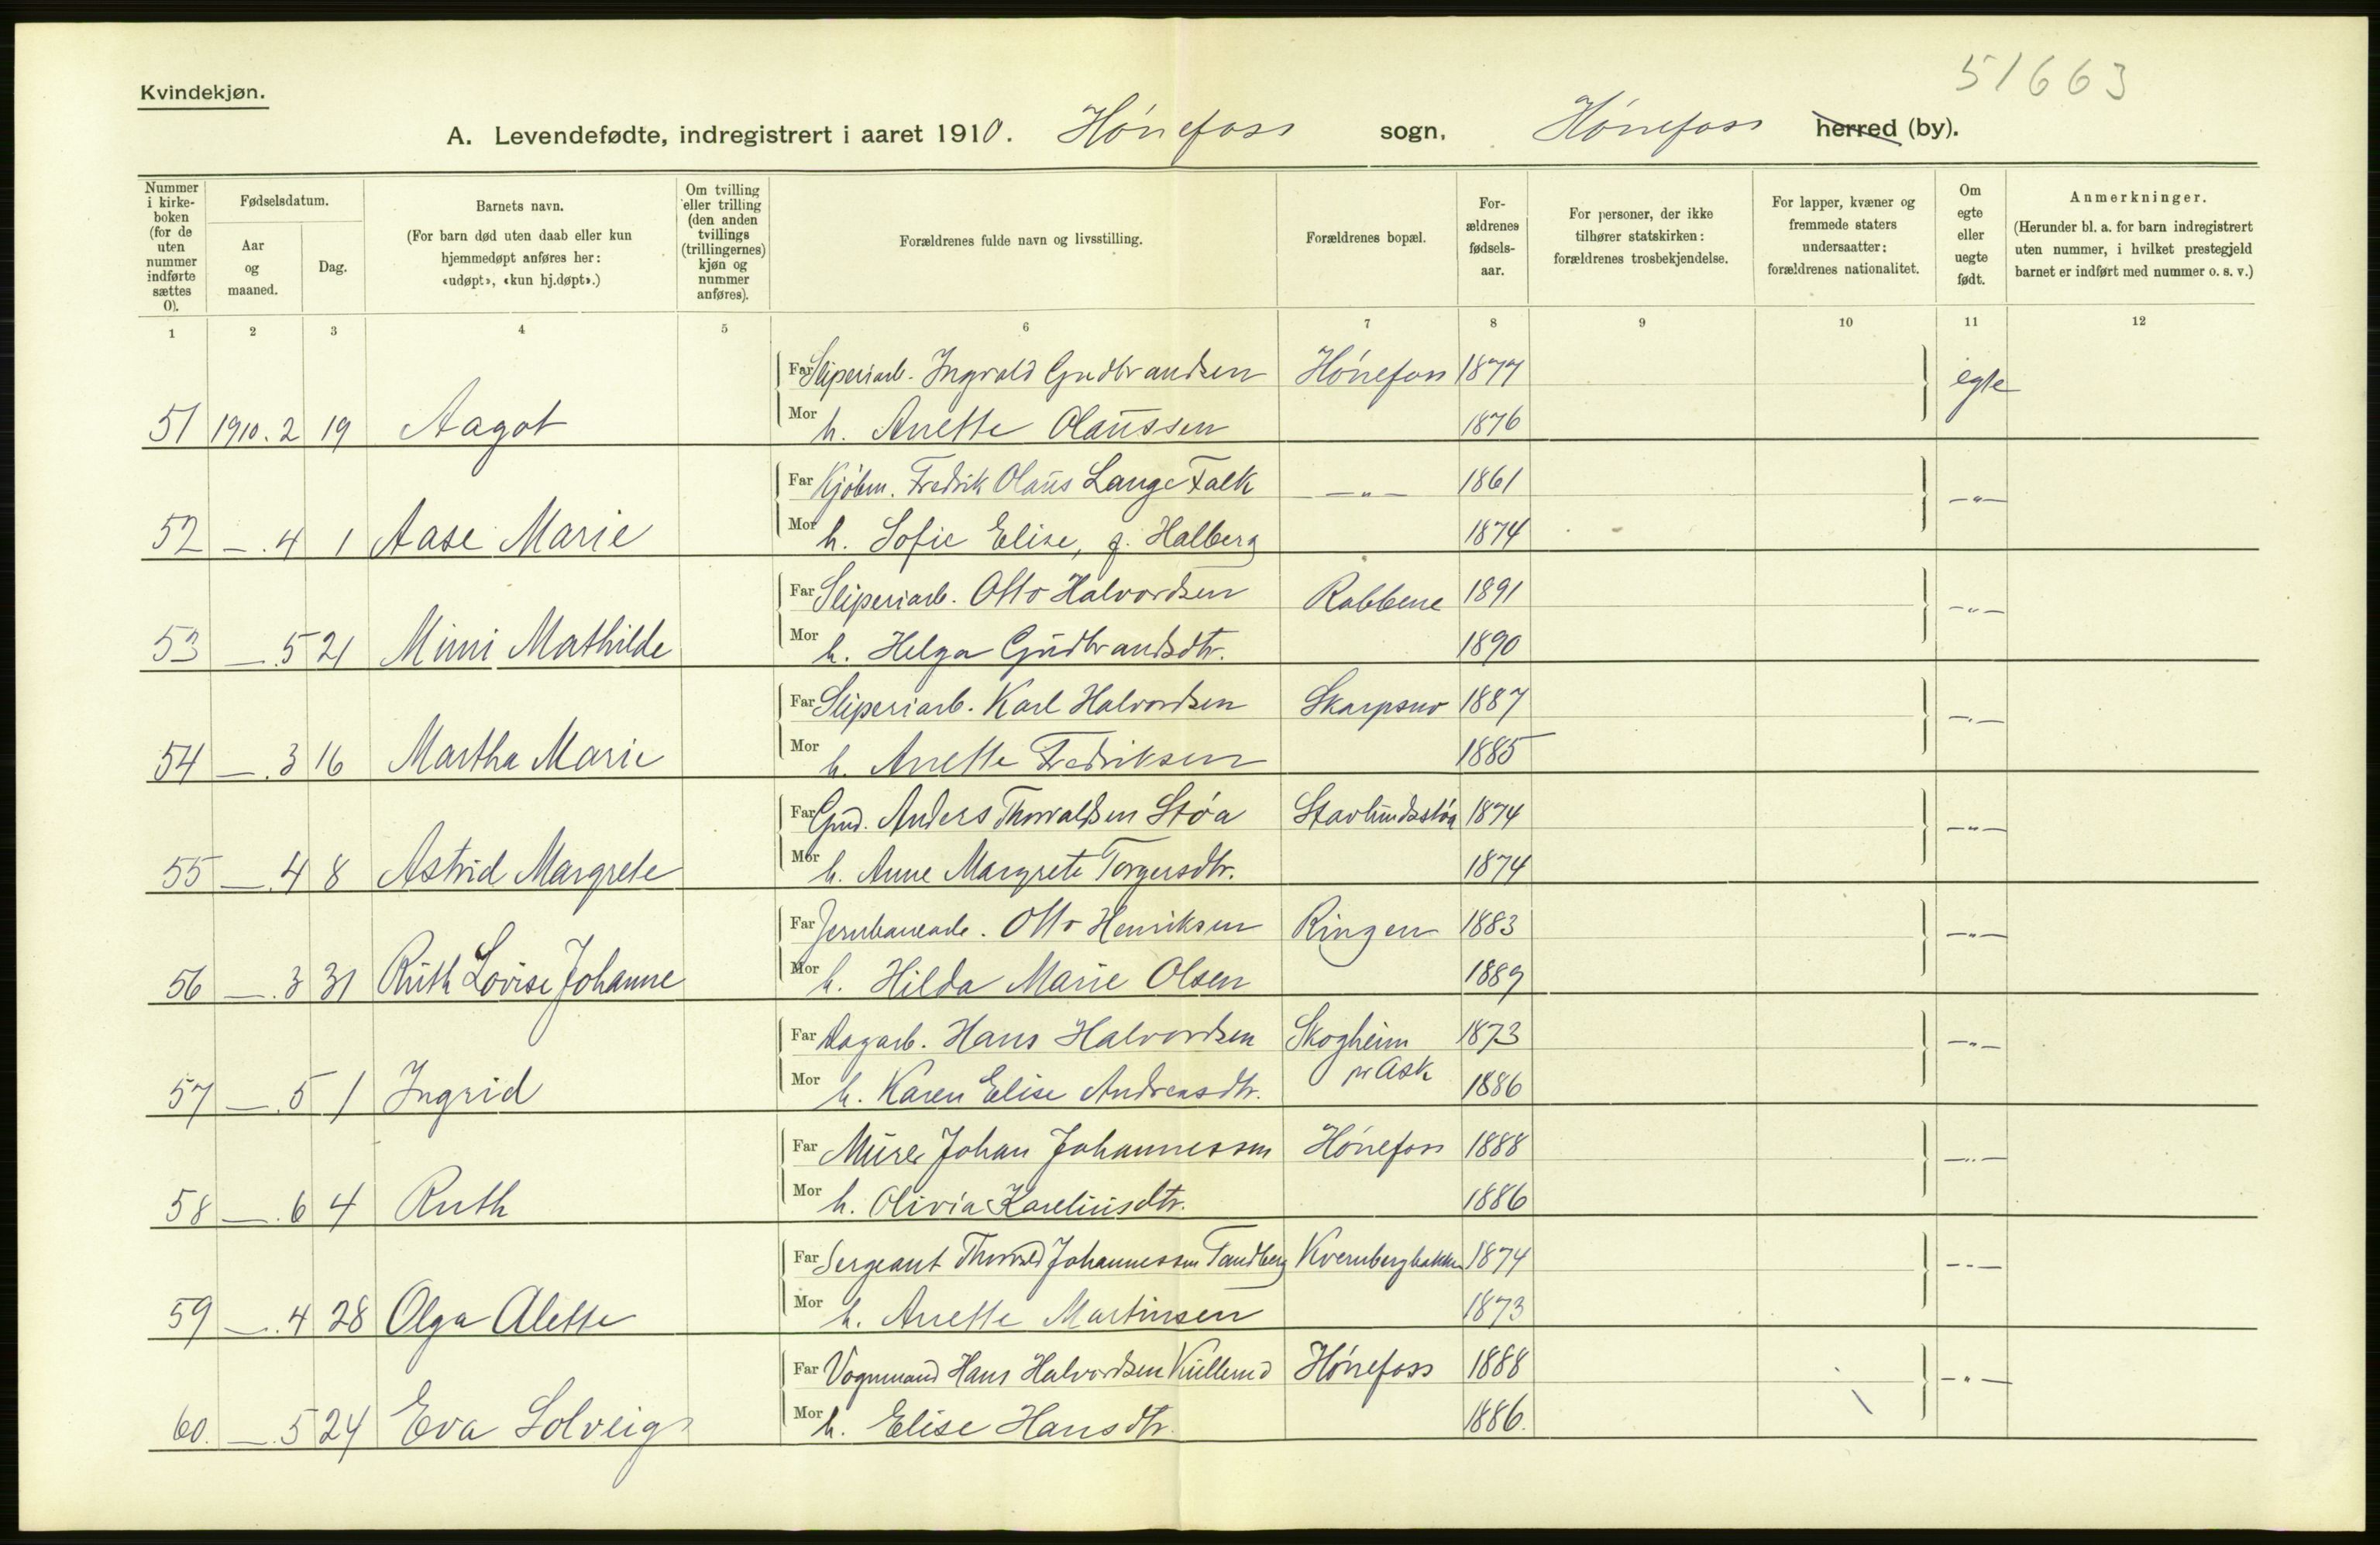 51663
Kvindekjøn.
A. Levendefødte, indregistrert i aaret 1910. Hönefoss sogn, Hönefoss herred (by).
Nummer i kirke-boken (for de uten nummer indførte sættes 0).
Fødselsdatum.
Aar og maaned.
Dag.
Barnets navn.
(For barn død uten daab eller kun hjemmedøpt anføres her: «udøpt», «kun hj.døpt».)
Om tvilling eller trilling (den anden tvillings (trillingernes) kjøn og nummer anføres).
Forældrenes fulde navn og livsstilling.
Forældrenes bopæl.
For-ældrenes fødsels-aar.
For personer, der ikke tilhører statskirken: forældrenes trosbekjendelse.
For lapper, kvæner og fremmede staters undersaatter: forældrenes nationalitet.
Om egte eller uegte født.
Anmerkninger.
(Herunder bl. a. for barn indregistrert uten nummer, i hvilket prestegjeld barnet er indført med nummer o. s. v.)
1 2 3 4 5 6 7 8 9 10 11 12
Far Sliperiarb. Ingvald Gudbrandsen Hönefoss 1877 egte
51 1910. 2 19 Aagot Mor h. Anette Olaussen 1876
Far Kjöbm. Fredrik Olaus Lange Falk —"— 1861 —"—
52 — . 4 1 Aase Marie Mor h. Sofie Elise, g. Halberg 1874
Far Sliperiarb. Otto Halvordsen Rabbene 1891 —"—
53 — . 5 21 Mimi Mathilde Mor h. Helga Gudbrandsdtr. 1890
Far Sliperiarb. Karl Halvordsen Skarpsno 1887 —"—
54 — . 3 16 Martha Marie Mor h. Anette Fredriksen 1885
Far Gmd. Anders Thorvaldsen Støa Stavlundsstøa 1874 —"—
55 — 4 8 Astrid Margrete Mor h. Anne Margrete Torgersdtr. 1874
Far Jernbanearb. Otto Henriksen Ringen 1883 —"—
56 — . 3 31 Ruth Lovise Johanne Mor h. Hilda Marie Olsen 1889
Far Dagarb. Hans Halvordsen Skogheim 1873 —"—
57 — 5 1 Ingrid Mor h. Karen Elise Andreasdtr. pr Ask 1886
Far Murer Johan Johannessen Hönefoss 1888 —"—
58 — . 6 4 Ruth Mor h. Olivia Kareliusdtr. 1886
Far Sergeant Thorvald Johannessen Tandberg Kvernbergbakken 1874 —"—
59 — . 4 28 Olga Alette Mor h. Anette Martinsen 1873
Far Vognmand Hans Halvordsen Kullerud Hönefoss 1888 —"—
60. — . 5 24 Eva Solveig Mor h. Elise Hansdtr. 1886.